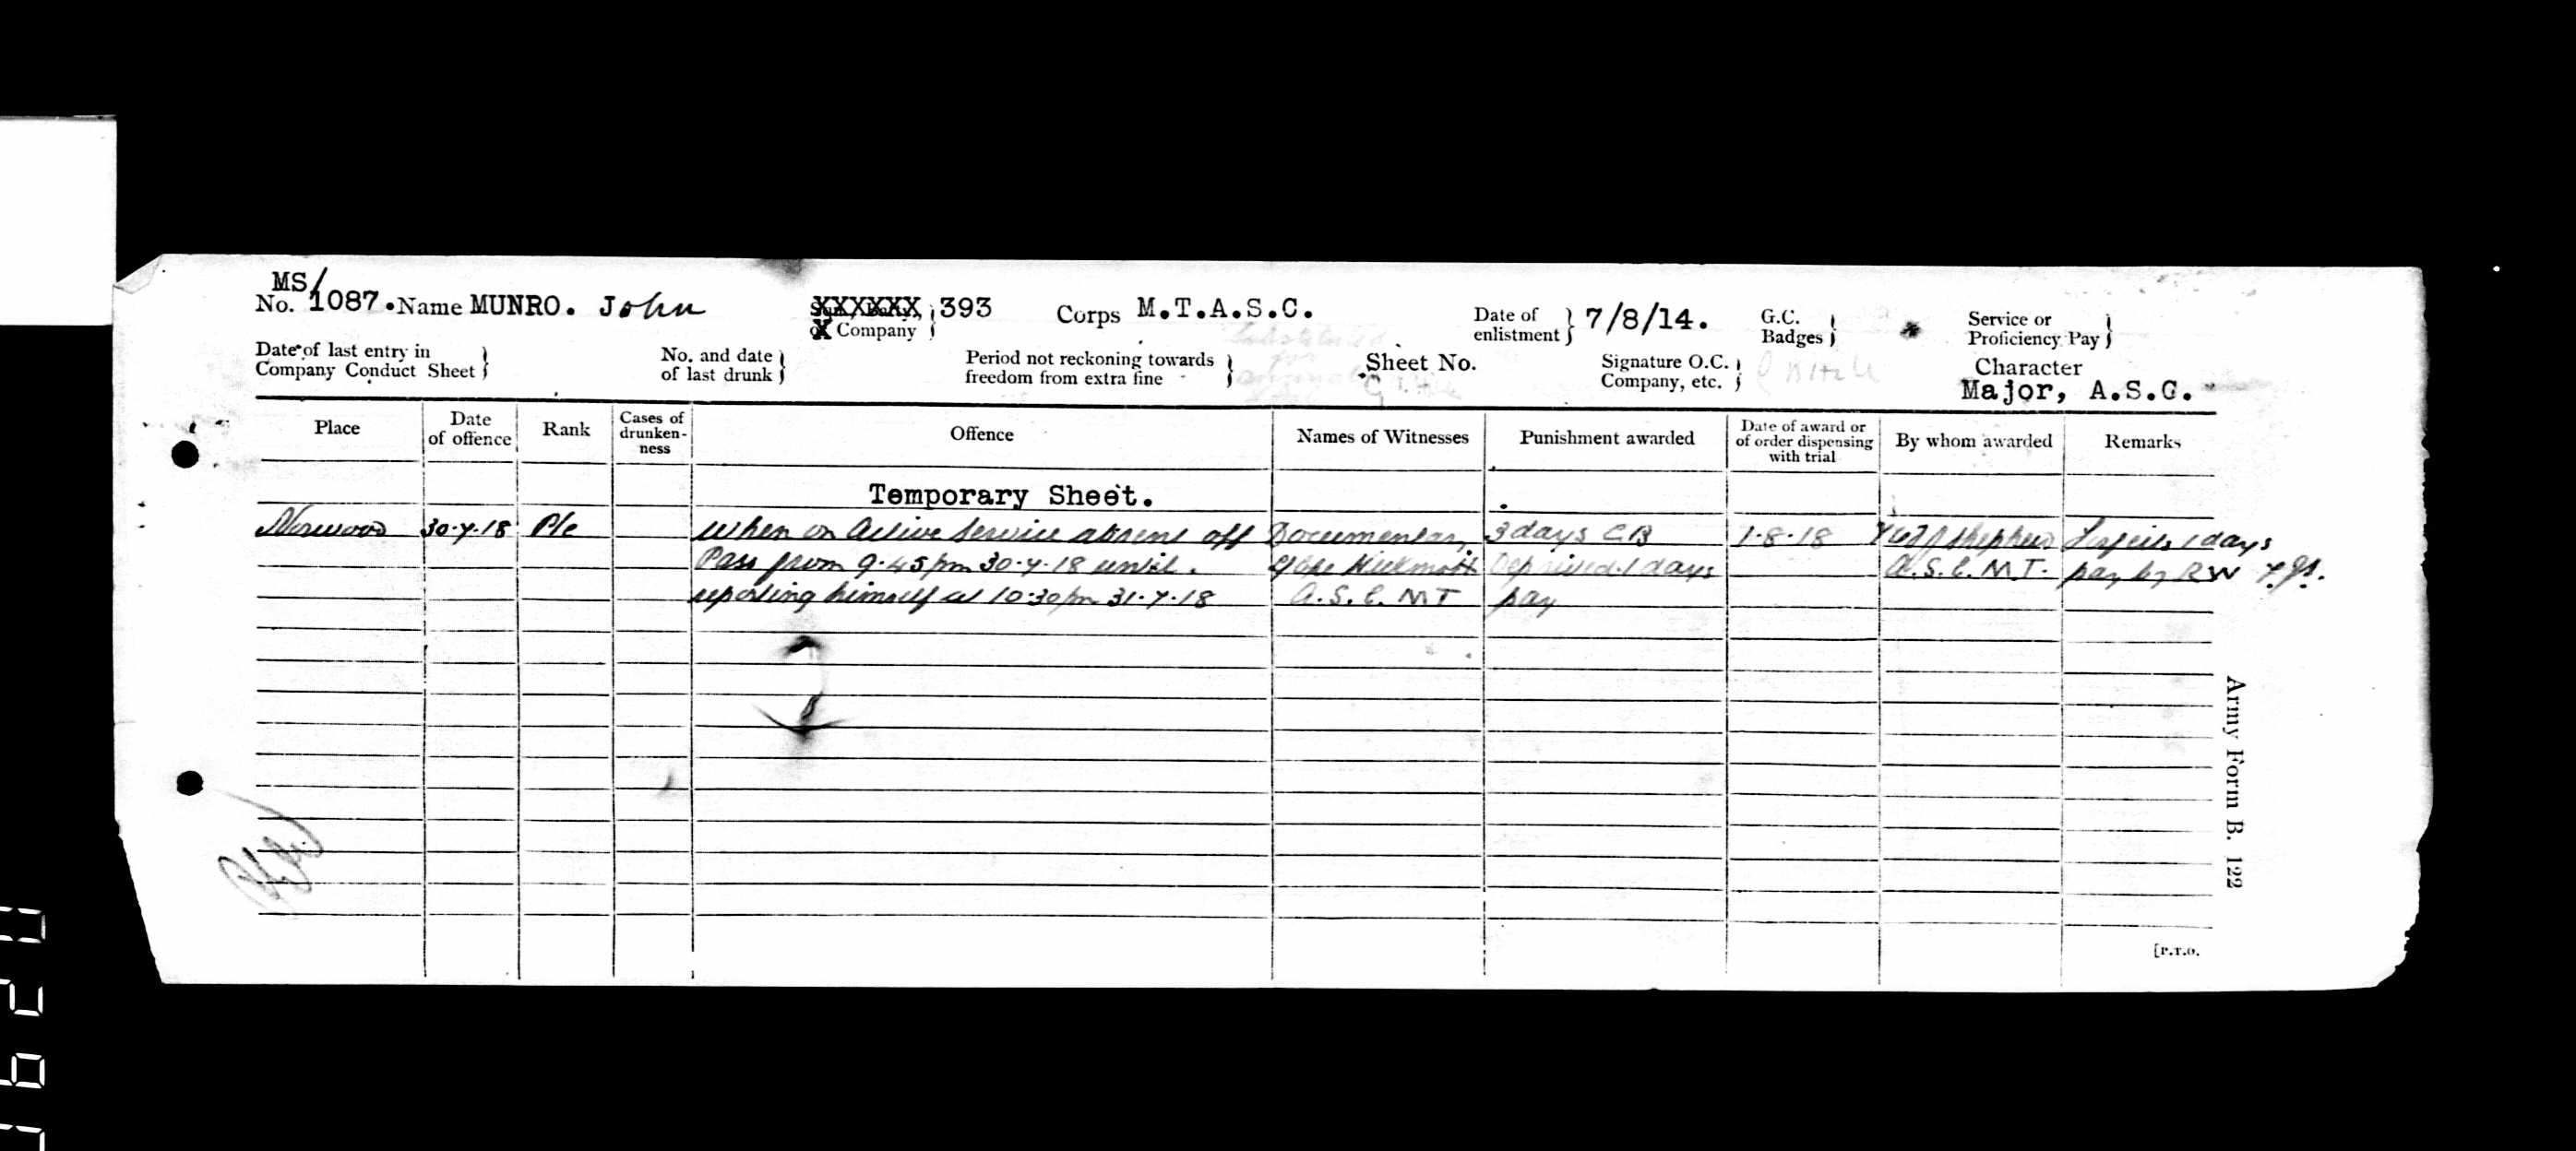 MS/
No. 1087. Name MUNRO. John XXXXXX 393 Corps M.T.A.S.C. Date of enlistment 7/8/14. G.C. Badges Service or Proficiency Pay
X Company
Date of last entry in Company Conduct Sheet No. and date of last drunk Period not reckoning towards freedom from extra fine Sheet No. Signature O.C. Company, etc. Character
Major, A.S.C.
Place Date of offence Rank Cases of drunken-ness Offence Names of Witnesses Punishment awarded Date of award or of order dispensing with trial By whom awarded Remarks
Temporary Sheet.
Norwood 30.7.18 Pte When on Active Service absent off Documentary 3 days C B 1.8.18 Shepherd Forfeits 1 days
Pass from 9.45 pm 30.7.18 until Deprived 1 days A.S.C. M.T. pay by R W
reporting himself at 10.30 pm 31.7.18 A.S.C. M T pay
Army Form B. 122
[P.T.O.